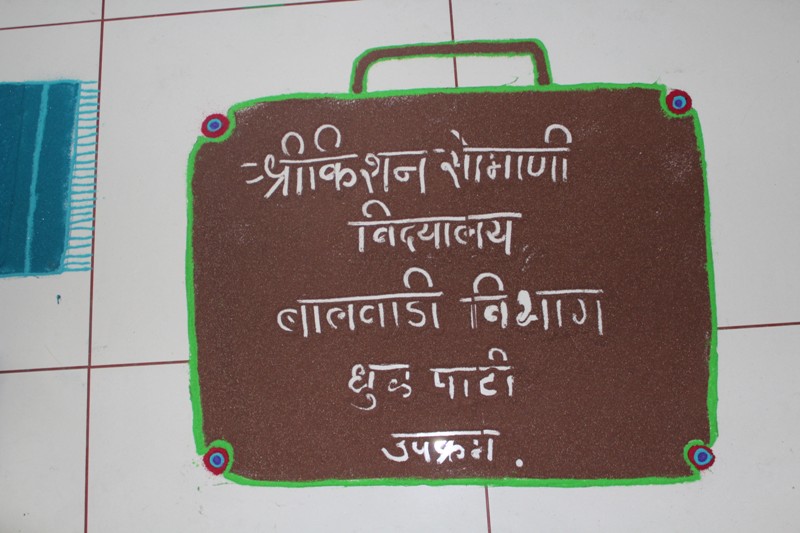 श्रीकिशन सोमाणी
विदयालय
बालवाडी विभाग
धुळ पाटी
उपक्रम.